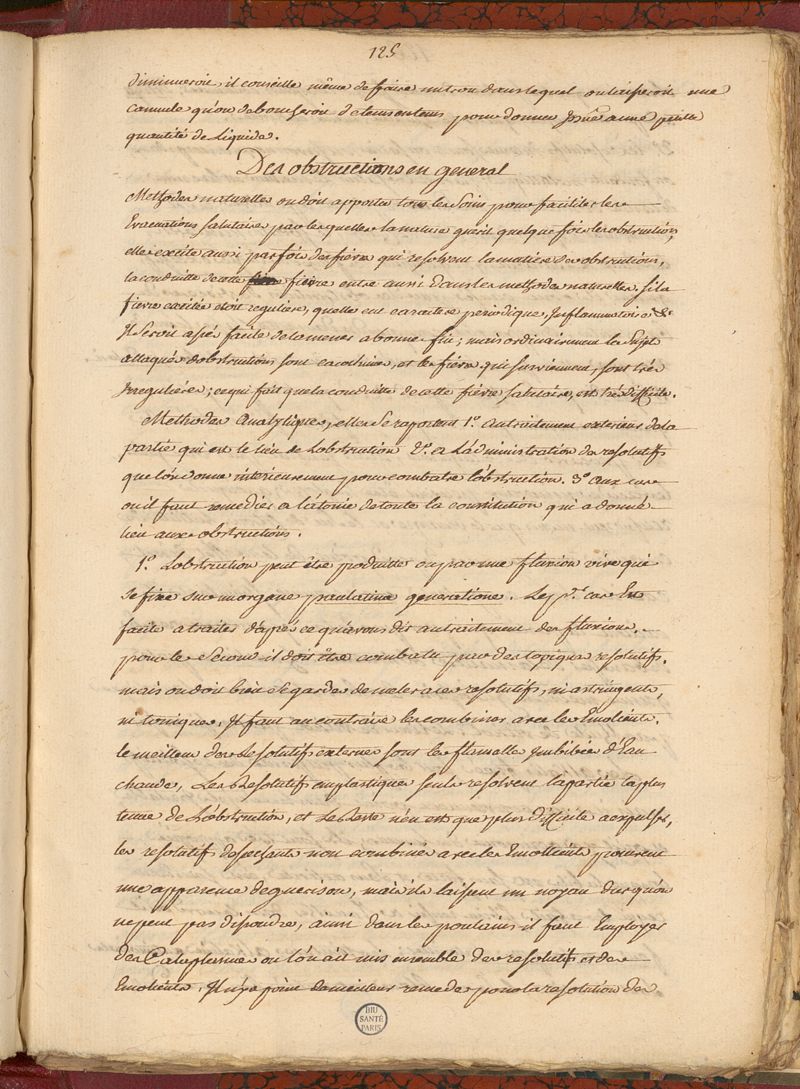 125
diminueroit, il conseille même de faire un trou dans lequel on laisseroit une
canule qu'on deboucheroit de tems en tems pour donner issue a une petite
quantité de liquide.
Des obstructions en general
Methodes naturelles on doit apporter tous les soins pour faciliter les
Evacuations salutaires par lesquelles la nature guérit quelque fois les obstructions,
elle excite aussi parfois des fièvres qui resolvent la matière des obstructions,
la conduitte de cette fièvre entre aussi dans les methodes naturelles. si la
fievre excitée etoit reguliere, quelle eut caractere periodique, Inflammatoire &c
Il seroit assés facile de la mener a bonne fin; mais ordinairement les sujets
attaqués d'obstructions sont cacochimes, et les fièvres qui surviennent, sont très
Irregulières; ce qui fait que la conduitte de cette fièvre salutaire, est très difficile.
Methodes Analytiques, elles se raportent 1.o au traitement exterieur de la
partie qui est le lieu de l'obstruction 2.o a L'administration des resolutifs
que l'on donne interieurement pour combatre l'obstruction. 3.o aux cas
ou il faut remedier a l'atonie de toute la constitution qui a donné
lieu aux obstructions.
1.o L'obstruction peut être produitte ou par une fluxion vive qui
se fixe sur un organe paulatina generatione. Le p.r cas Est
facile a traiter d'après ce qu'avons dit au traitement des fluxions.
pour le second il doit être combatu par des topiques resolutifs.
mais on doit bien se garder de meler a ces resolutifs, ni astringents,
ni toniques, Il faut au contraire les combiner avec les Emolients.
le meilleur des Resolutifs externes sont les flanelles Imbibées d'Eau
chaude, Les Resolutifs emplastiques seuls resolvent la partie la plus
tenue de L'obstruction, et Le Reste n'en est que plus difficile a expulser,
les resolutifs dessechants non combinés avec les Emollients procurent
une apparence de guerison, mais ils laissent un noyau dur qu'on
ne peut pas dissoudre, ainsi dans les poulains il faut Employer
des Cataplasmes ou l'on ait mis ensemble des resolutifs et des
Emolients, Il n'y a point de meilleurs remedes pour la resolution des
BIU
SANTÉ
PARIS